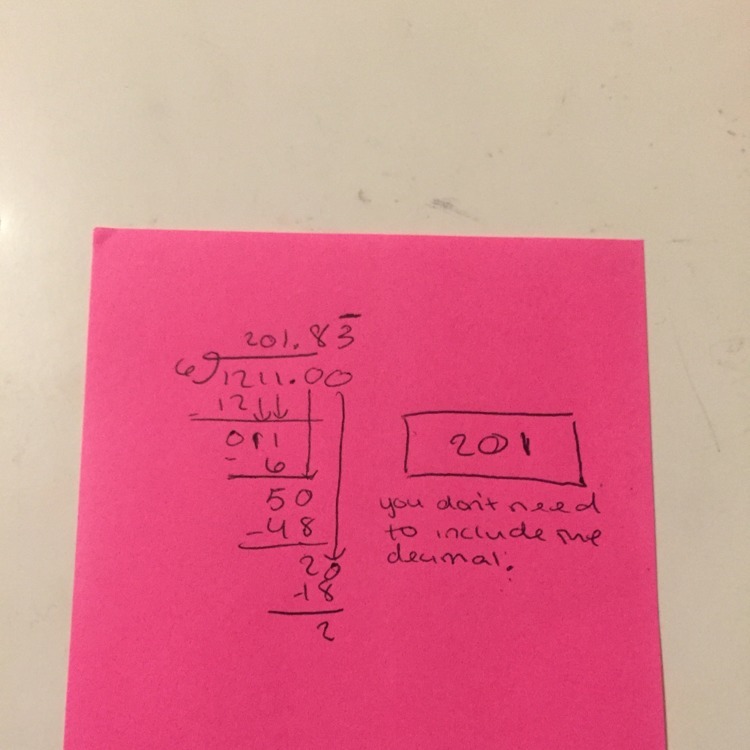 201.83̅
6)1211.00
- 12↓↓
011
- 6
50
-48
20
-18
2
201
you don't need
to include the
decimal.